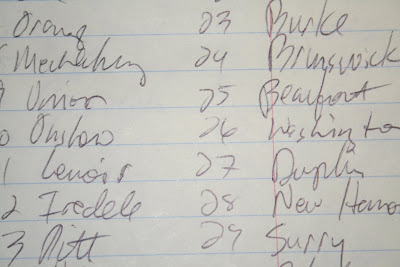 Orang 23 Burke
Mecklenburg 24 Brunswick
Union 25 Beaufort
0 Onslow 26 Washington
1 Lenoir 27 Duplin
2 Iredele 28 New Hano
3 Pitt 29 Surry